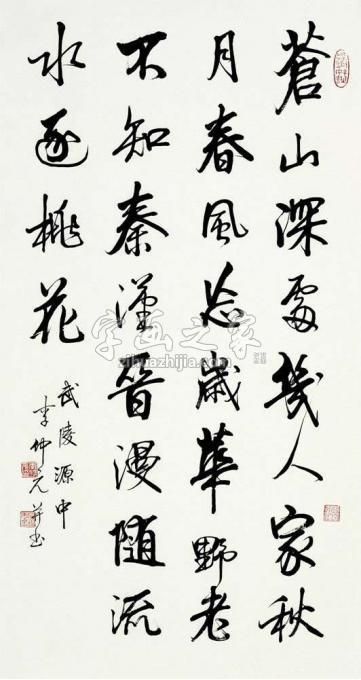 蒼山深處幾人家秋
月春風忘歲華野老
不知秦漢晉漫隨流
水逐桃花
武陵源中
李仲元并书
字画之家
zihuazhijia.com